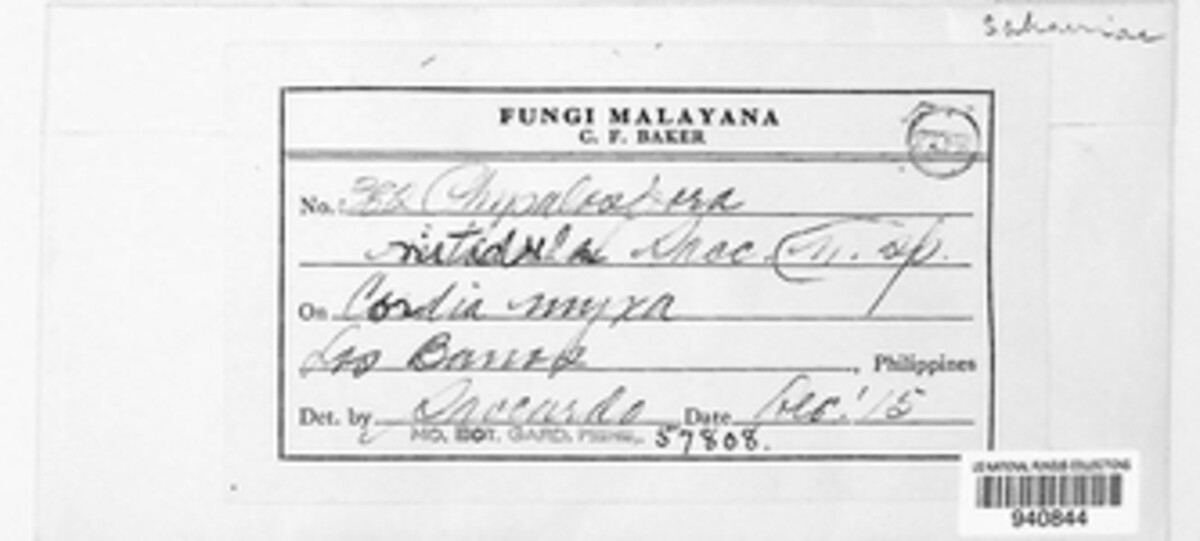 FUNGI MALAYANA
C. F. BAKER
No.: Physalospora
nitidula Sacc. (n. sp.
On Cordia myxa
Los Banos, Philippines
Det. by Saccardo Date Dec. '15
MO. BOT. GARD. 57808.
US NATIONAL FUNGUS COLLECTIONS
940844